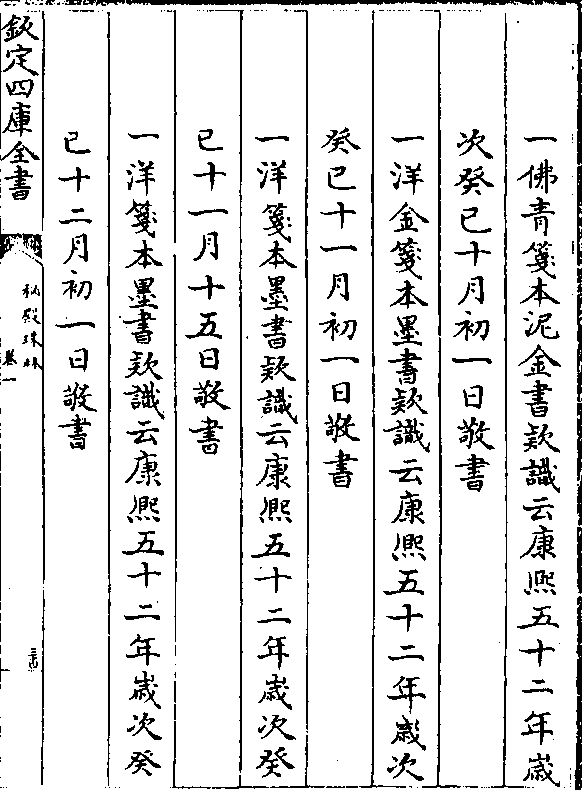 一佛青箋本泥金書欵識云康熈五十二年嵗
次癸巳十月初一日敬書
一洋金箋本墨書欵識云康熈五十二年嵗次
癸巳十一月初一日敬書
一洋箋本墨書欵識云康熈五十二年嵗次癸
巳十一月十五日敬書
一洋箋本墨書欵識云康熈五十二年嵗次癸
巳十二月初一日敬書
欽定四庫全書
秘殿珠林
卷一
三十四